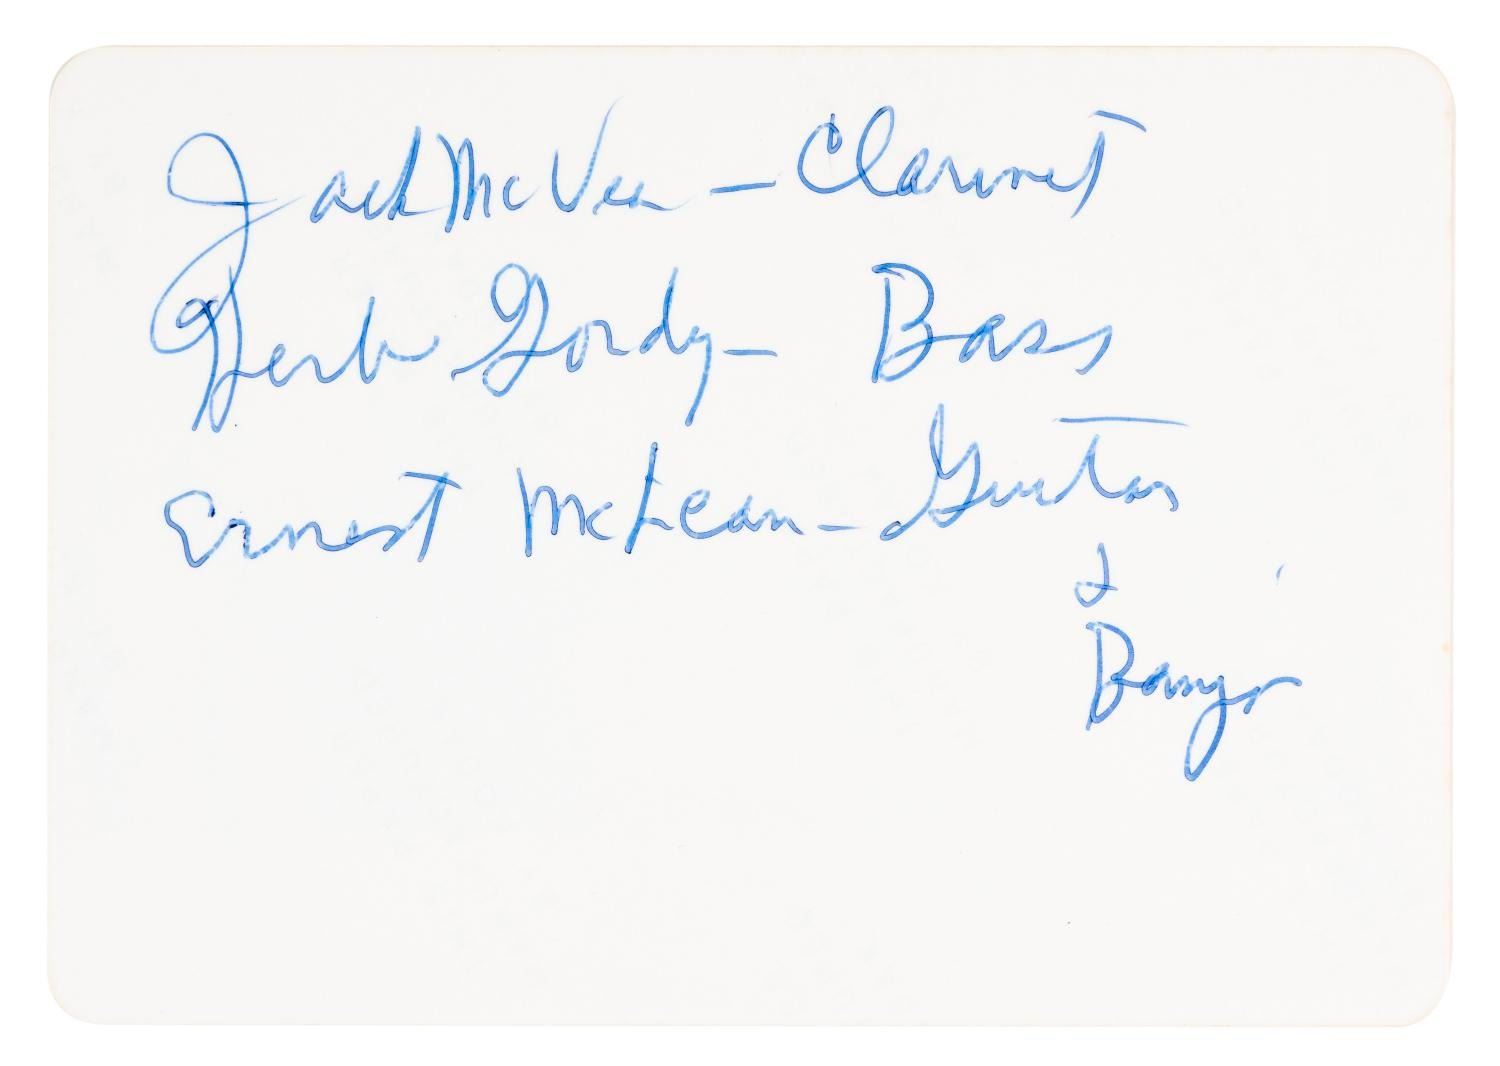 Jack McVea - Clarinet
Herb Gordy - Bass
Ernest McLean - Guitar
&
Banjo